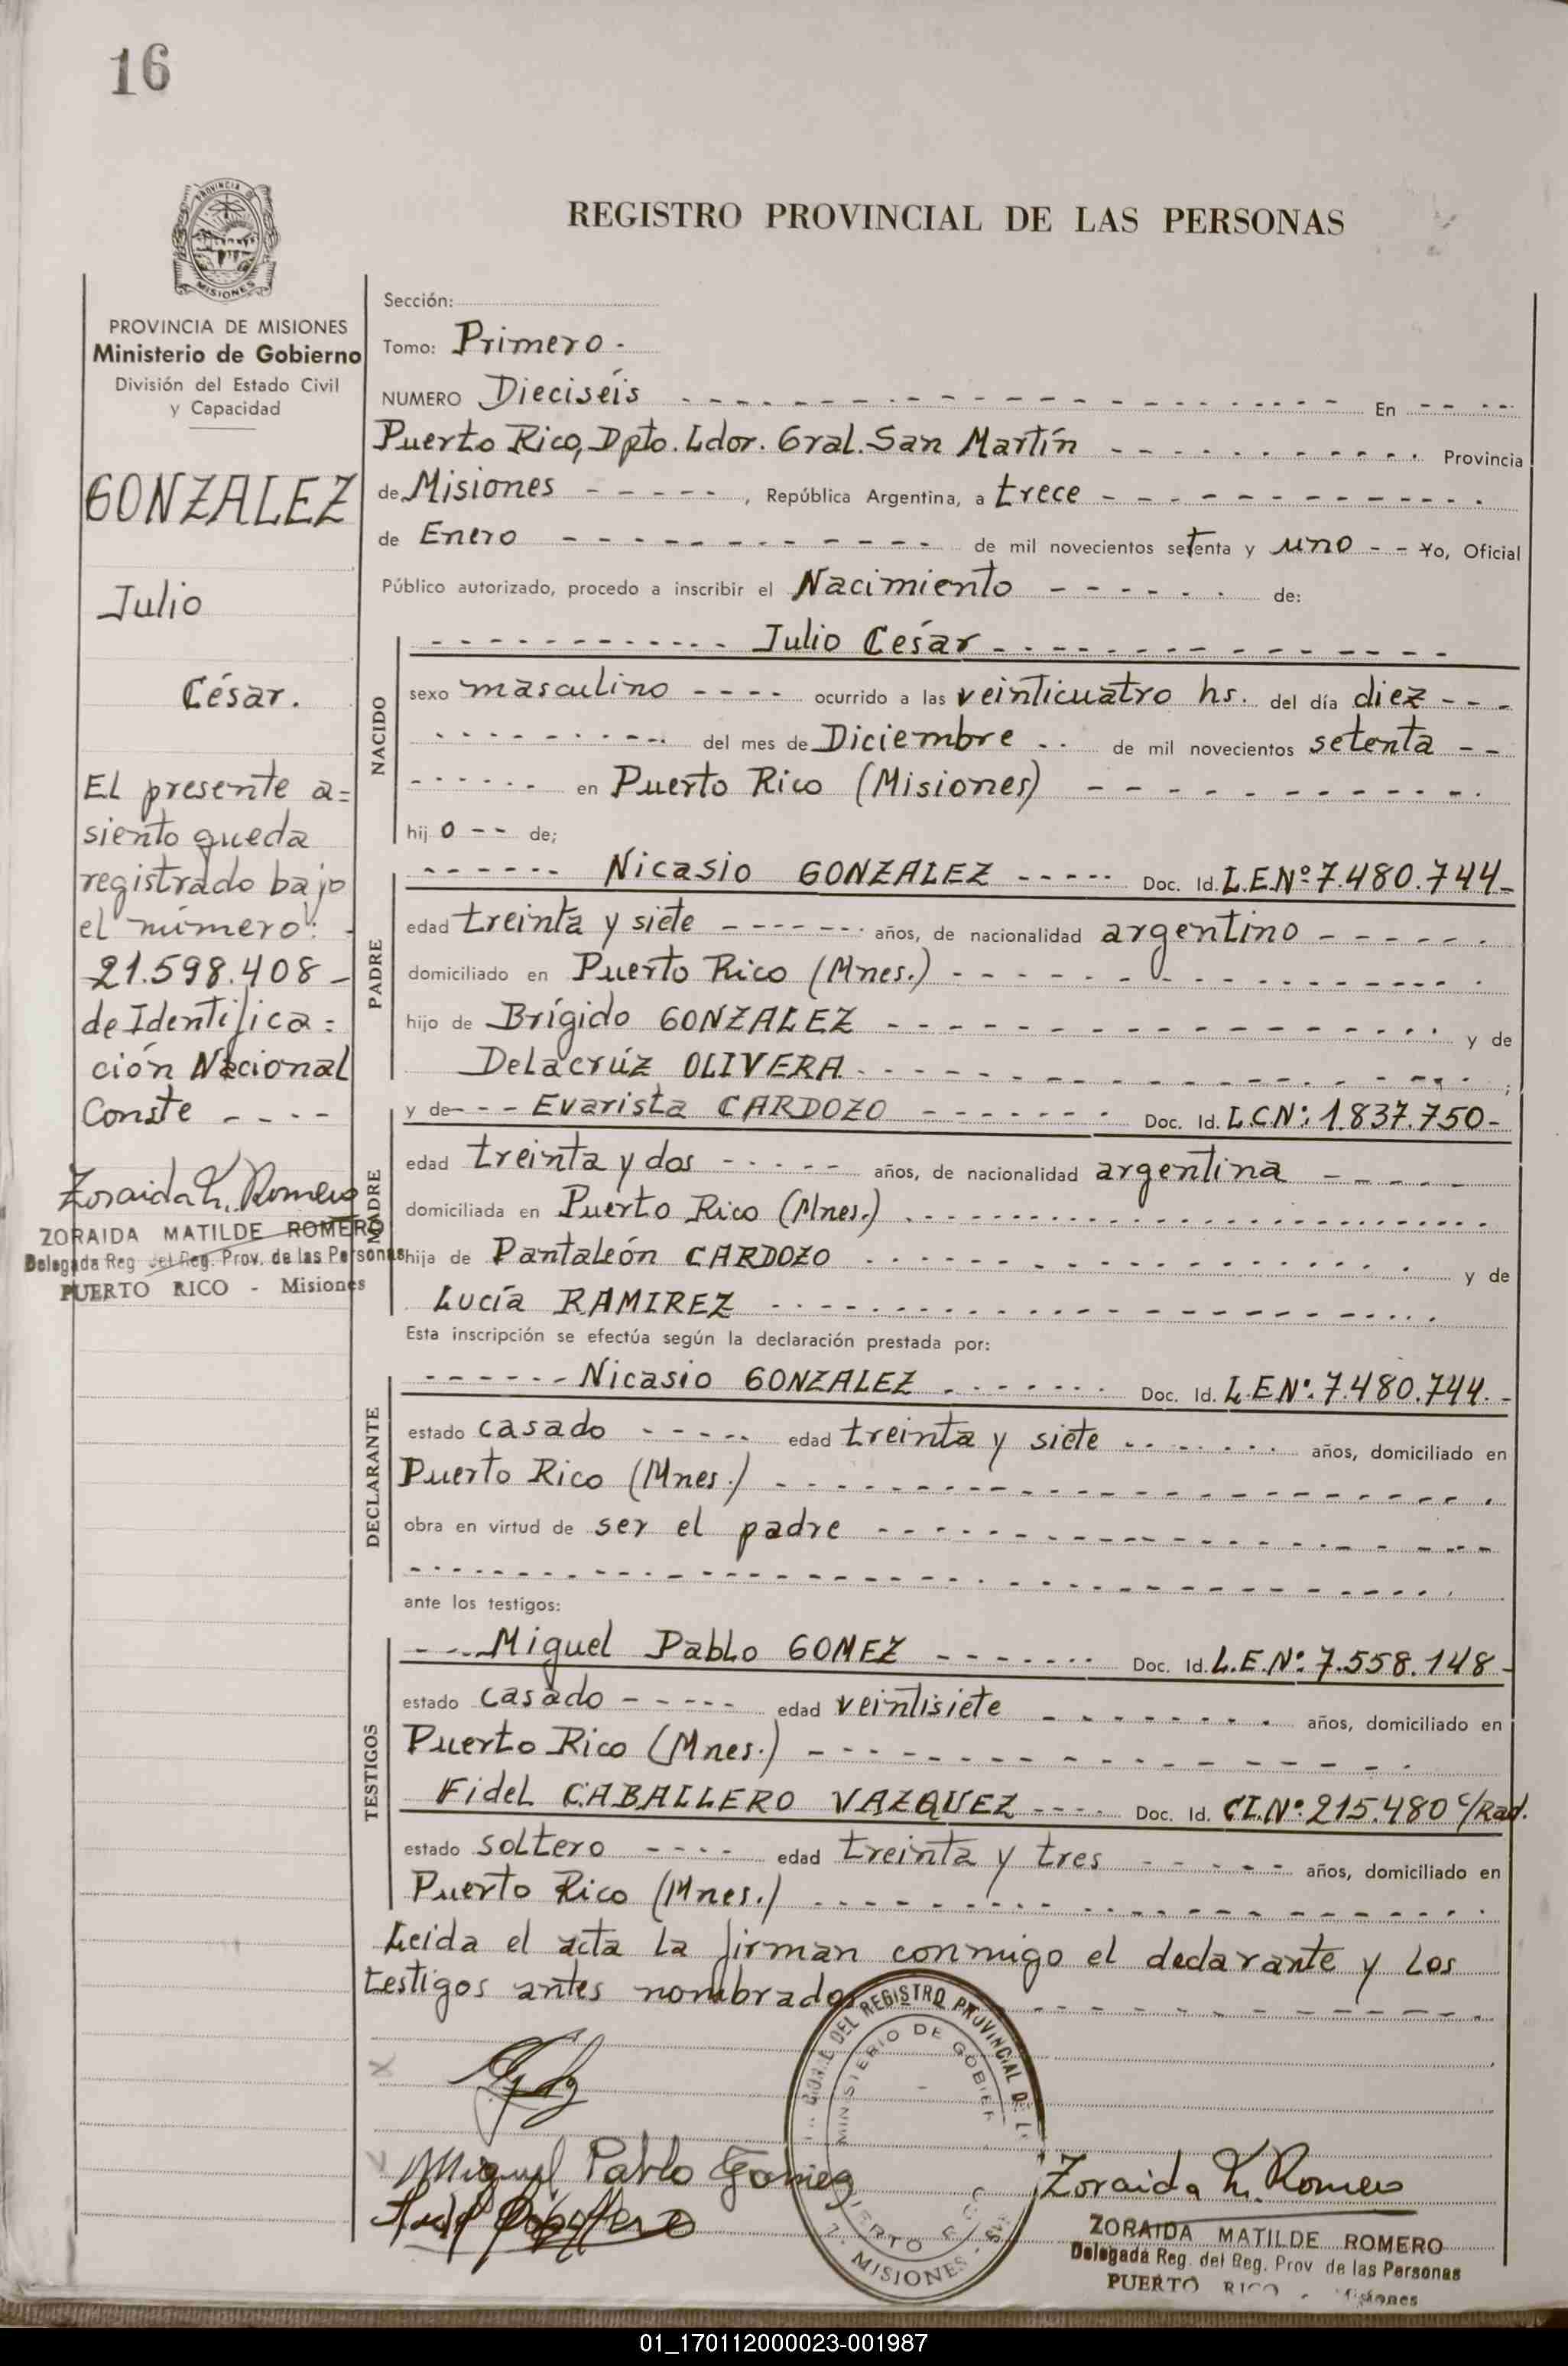 16
REGISTRO PROVINCIAL DE LAS PERSONAS
PROVINCIA DE
MISIONES
PROVINCIA DE MISIONES
Ministerio de Gobierno
División del Estado Civil
y Capacidad
GONZALEZ
Julio
César.
El presente a=
siento queda
registrado bajo
el número:
21.598.408-
de Identifica=
ción Nacional
Conste
Zoraida M. Romero
ZORAIDA MATILDE ROMERO
Delegada Reg del Reg. Prov. de las Personas
PUERTO RICO - Misiones
Sección:
Tomo: Primero.
NUMERO Dieciséis En
Puerto Rico, Dpto. Ldor. Gral. San Martín Provincia
de Misiones, República Argentina, a trece
de Enero de mil novecientos setenta y uno Yo, Oficial
Público autorizado, procedo a inscribir el Nacimiento de:
NACIDO
Julio César
sexo masculino ocurrido a las veinticuatro hs. del día diez
del mes de Diciembre de mil novecientos setenta
en Puerto Rico (Misiones)
hijo de;
PADRE
Nicasio GONZALEZ Doc. Id. L.E.Nº 7.480.744-
edad treinta y siete años, de nacionalidad argentino
domiciliado en Puerto Rico (Mnes.)
hijo de Brígido GONZALEZ y de
Delacrúz OLIVERA ;
MADRE
y de Evarista CARDOZO Doc. Id. L.C.Nº: 1.837.750-
edad treinta y dos años, de nacionalidad argentina
domiciliada en Puerto Rico (Mnes.)
hija de Pantaleón CARDOZO y de
Lucía RAMIREZ
Esta inscripción se efectúa según la declaración prestada por:
DECLARANTE
Nicasio GONZALEZ Doc. Id. L.E.Nº: 7.480.744.-
estado casado edad treinta y siete años, domiciliado en
Puerto Rico (Mnes.)
obra en virtud de ser el padre
ante los testigos:
TESTIGOS
Miguel Pablo GOMEZ Doc. Id. L.E.Nº: 7.558.148-
estado casado edad veintisiete años, domiciliado en
Puerto Rico (Mnes.)
Fidel CABALLERO VAZQUEZ Doc. Id. C.I.Nº: 215.480 c/Rad.
estado soltero edad treinta y tres años, domiciliado en
Puerto Rico (Mnes.)
Leida el acta la firman conmigo el declarante y los
testigos antes nombrados
DEL REGISTRO PROVINCIAL DE L
MINISTERIO DE GOBIER
MISIONES
Miguel Pablo Gomez
Zoraida M. Romero
ZORAIDA MATILDE ROMERO
Delegada Reg. del Reg. Prov de las Personas
PUERTO RICO - Misiones
01_170112000023-001987